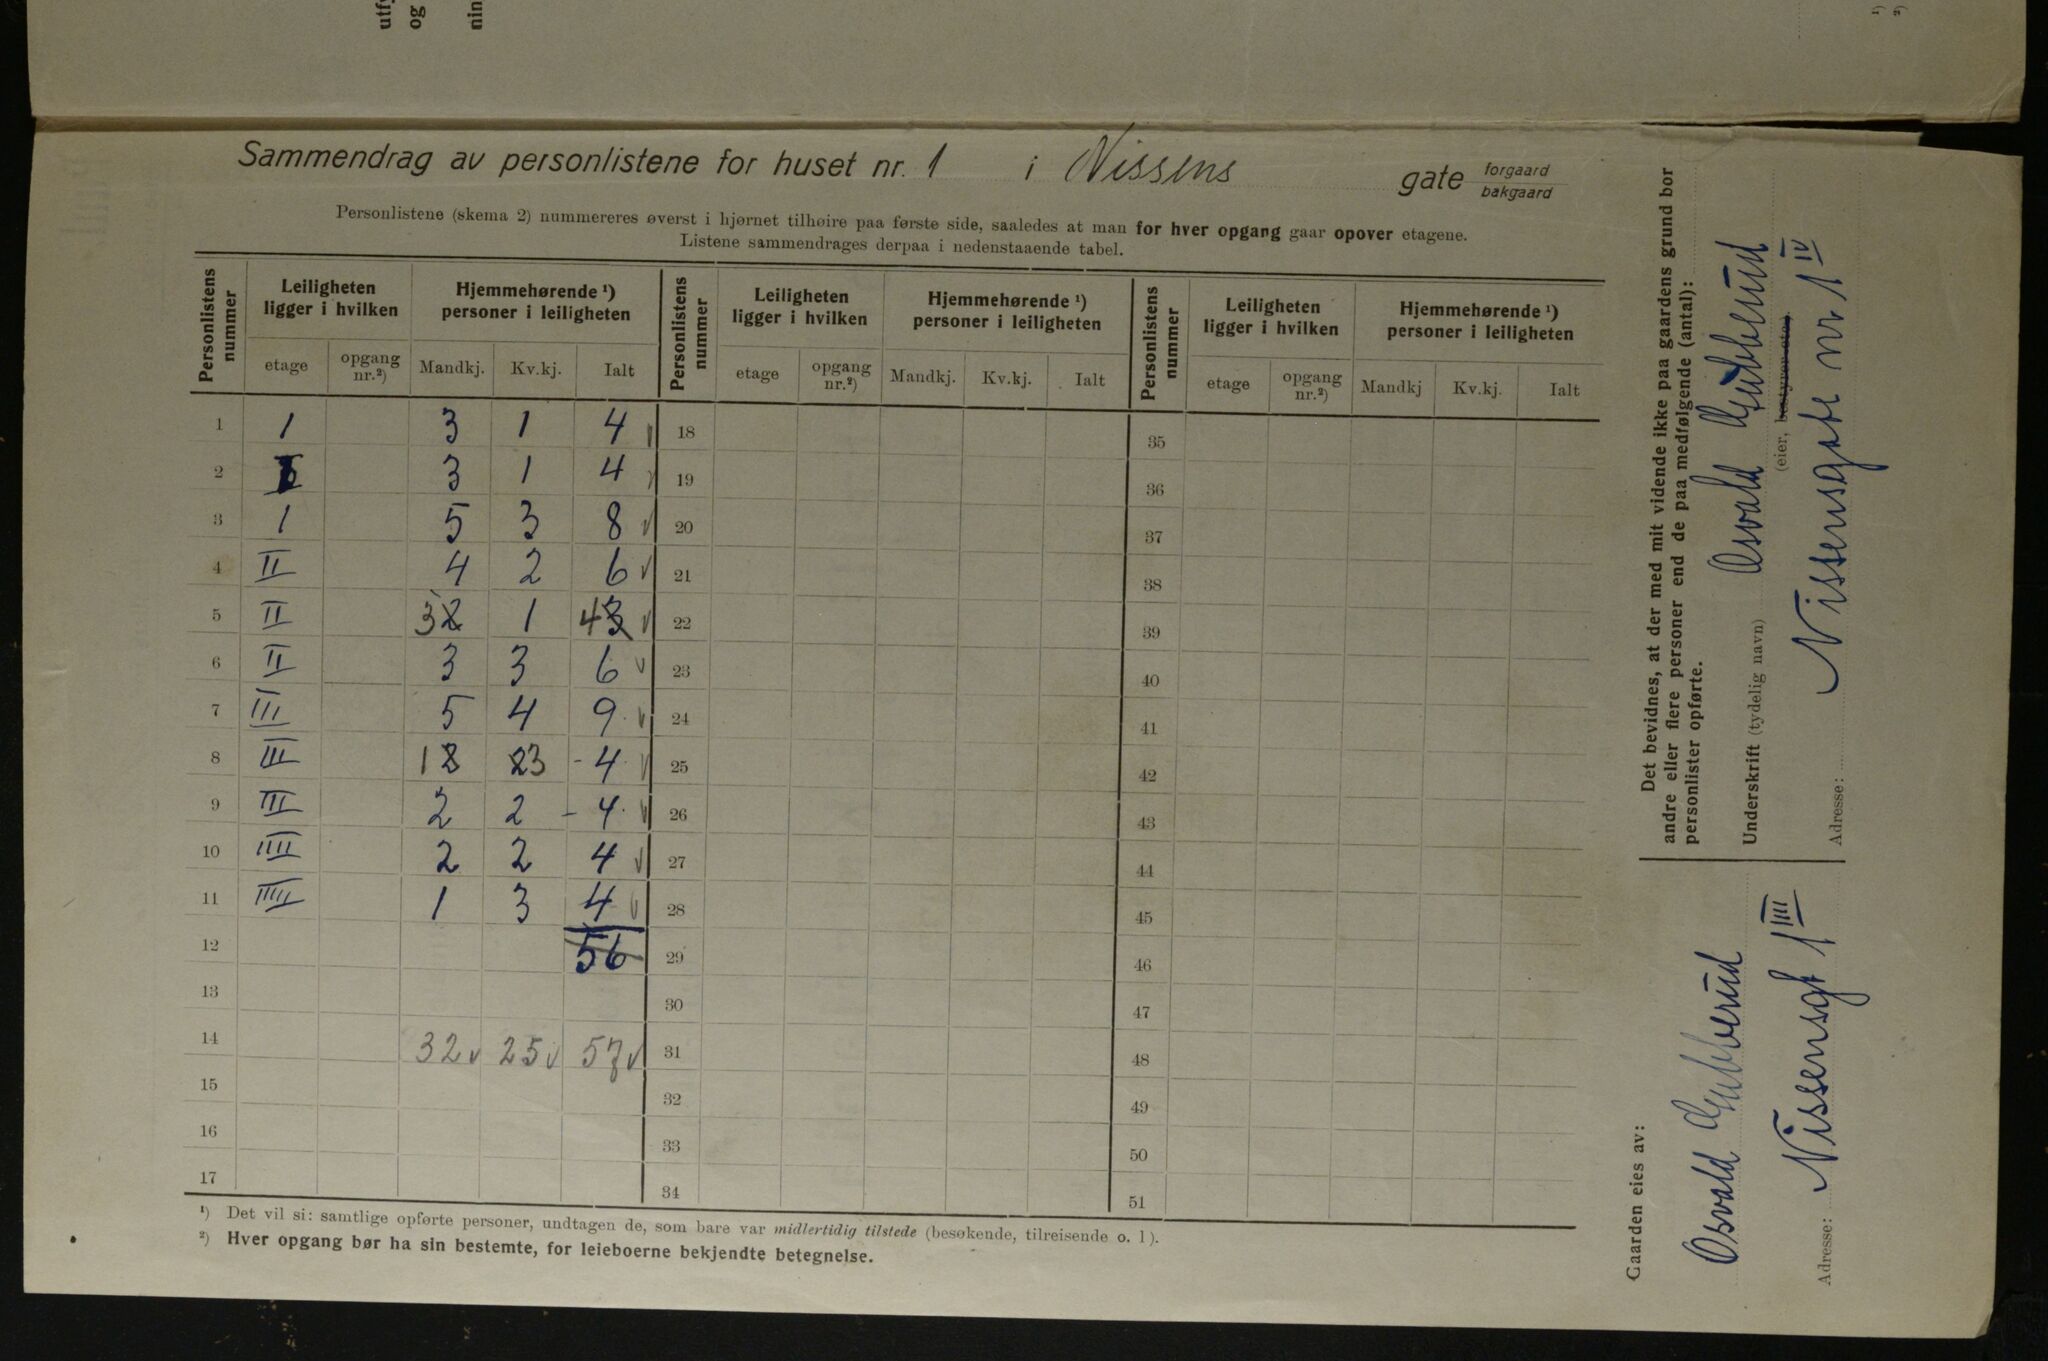 utfy
og
nin
¹)
²)
Sammendrag av personlistene for huset nr. 1 i Nissens gate forgaard bakgaard
Personlistene (skema 2) nummereres øverst i hjørnet tilhøire paa første side, saaledes at man for hver opgang gaar opover etagene.
Listene sammendrages derpaa i nedenstaaende tabel.
Personlistens nummer | Leiligheten ligger i hvilken | Hjemmehørende ¹) personer i leiligheten | Personlistens nummer | Leiligheten ligger i hvilken | Hjemmehørende ¹) personer i leiligheten | Personlistens nummer | Leiligheten ligger i hvilken | Hjemmehørende ¹) personer i leiligheten
etage | opgang nr.²) | Mandkj. | Kv.kj. | Ialt | etage | opgang nr.²) | Mandkj. | Kv.kj. | Ialt | etage | opgang nr.²) | Mandkj | Kv.kj. | Ialt
1 1 3 1 4 √ 18 35
2 3 1 4 √ 19 36
3 1 5 3 8 √ 20 37
4 II 4 2 6 √ 21 38
5 II 3 2 1 4 3 √ 22 39
6 II 3 3 6 √ 23 40
7 III 5 4 9 √ 24 41
8 III 1 2 2 3 - 4 √ 25 42
9 III 2 2 - 4 √ 26 43
10 IIII 2 2 4 √ 27 44
11 IIIII 1 3 4 √ 28 45
12 56 29 46
13 30 47
14 32 √ 25 √ 57 √ 31 48
15 32 49
16 33 50
17 34 51
¹) Det vil si: samtlige opførte personer, undtagen de, som bare var midlertidig tilstede (besøkende, tilreisende o. l).
²) Hver opgang bør ha sin bestemte, for leieboerne bekjendte betegnelse.
Det bevidnes, at der med mit vidende ikke paa gaardens grund bor
andre eller flere personer end de paa medfølgende (antal):
personlister opførte.
Underskrift (tydelig navn) Osvald Gubberud
(eier, bestyrer etc.)
Adresse: Nissensgate nr 1 IV
Gaarden eies av:
Osvald Gubberud
Adresse: Nissensgt 1 IIII